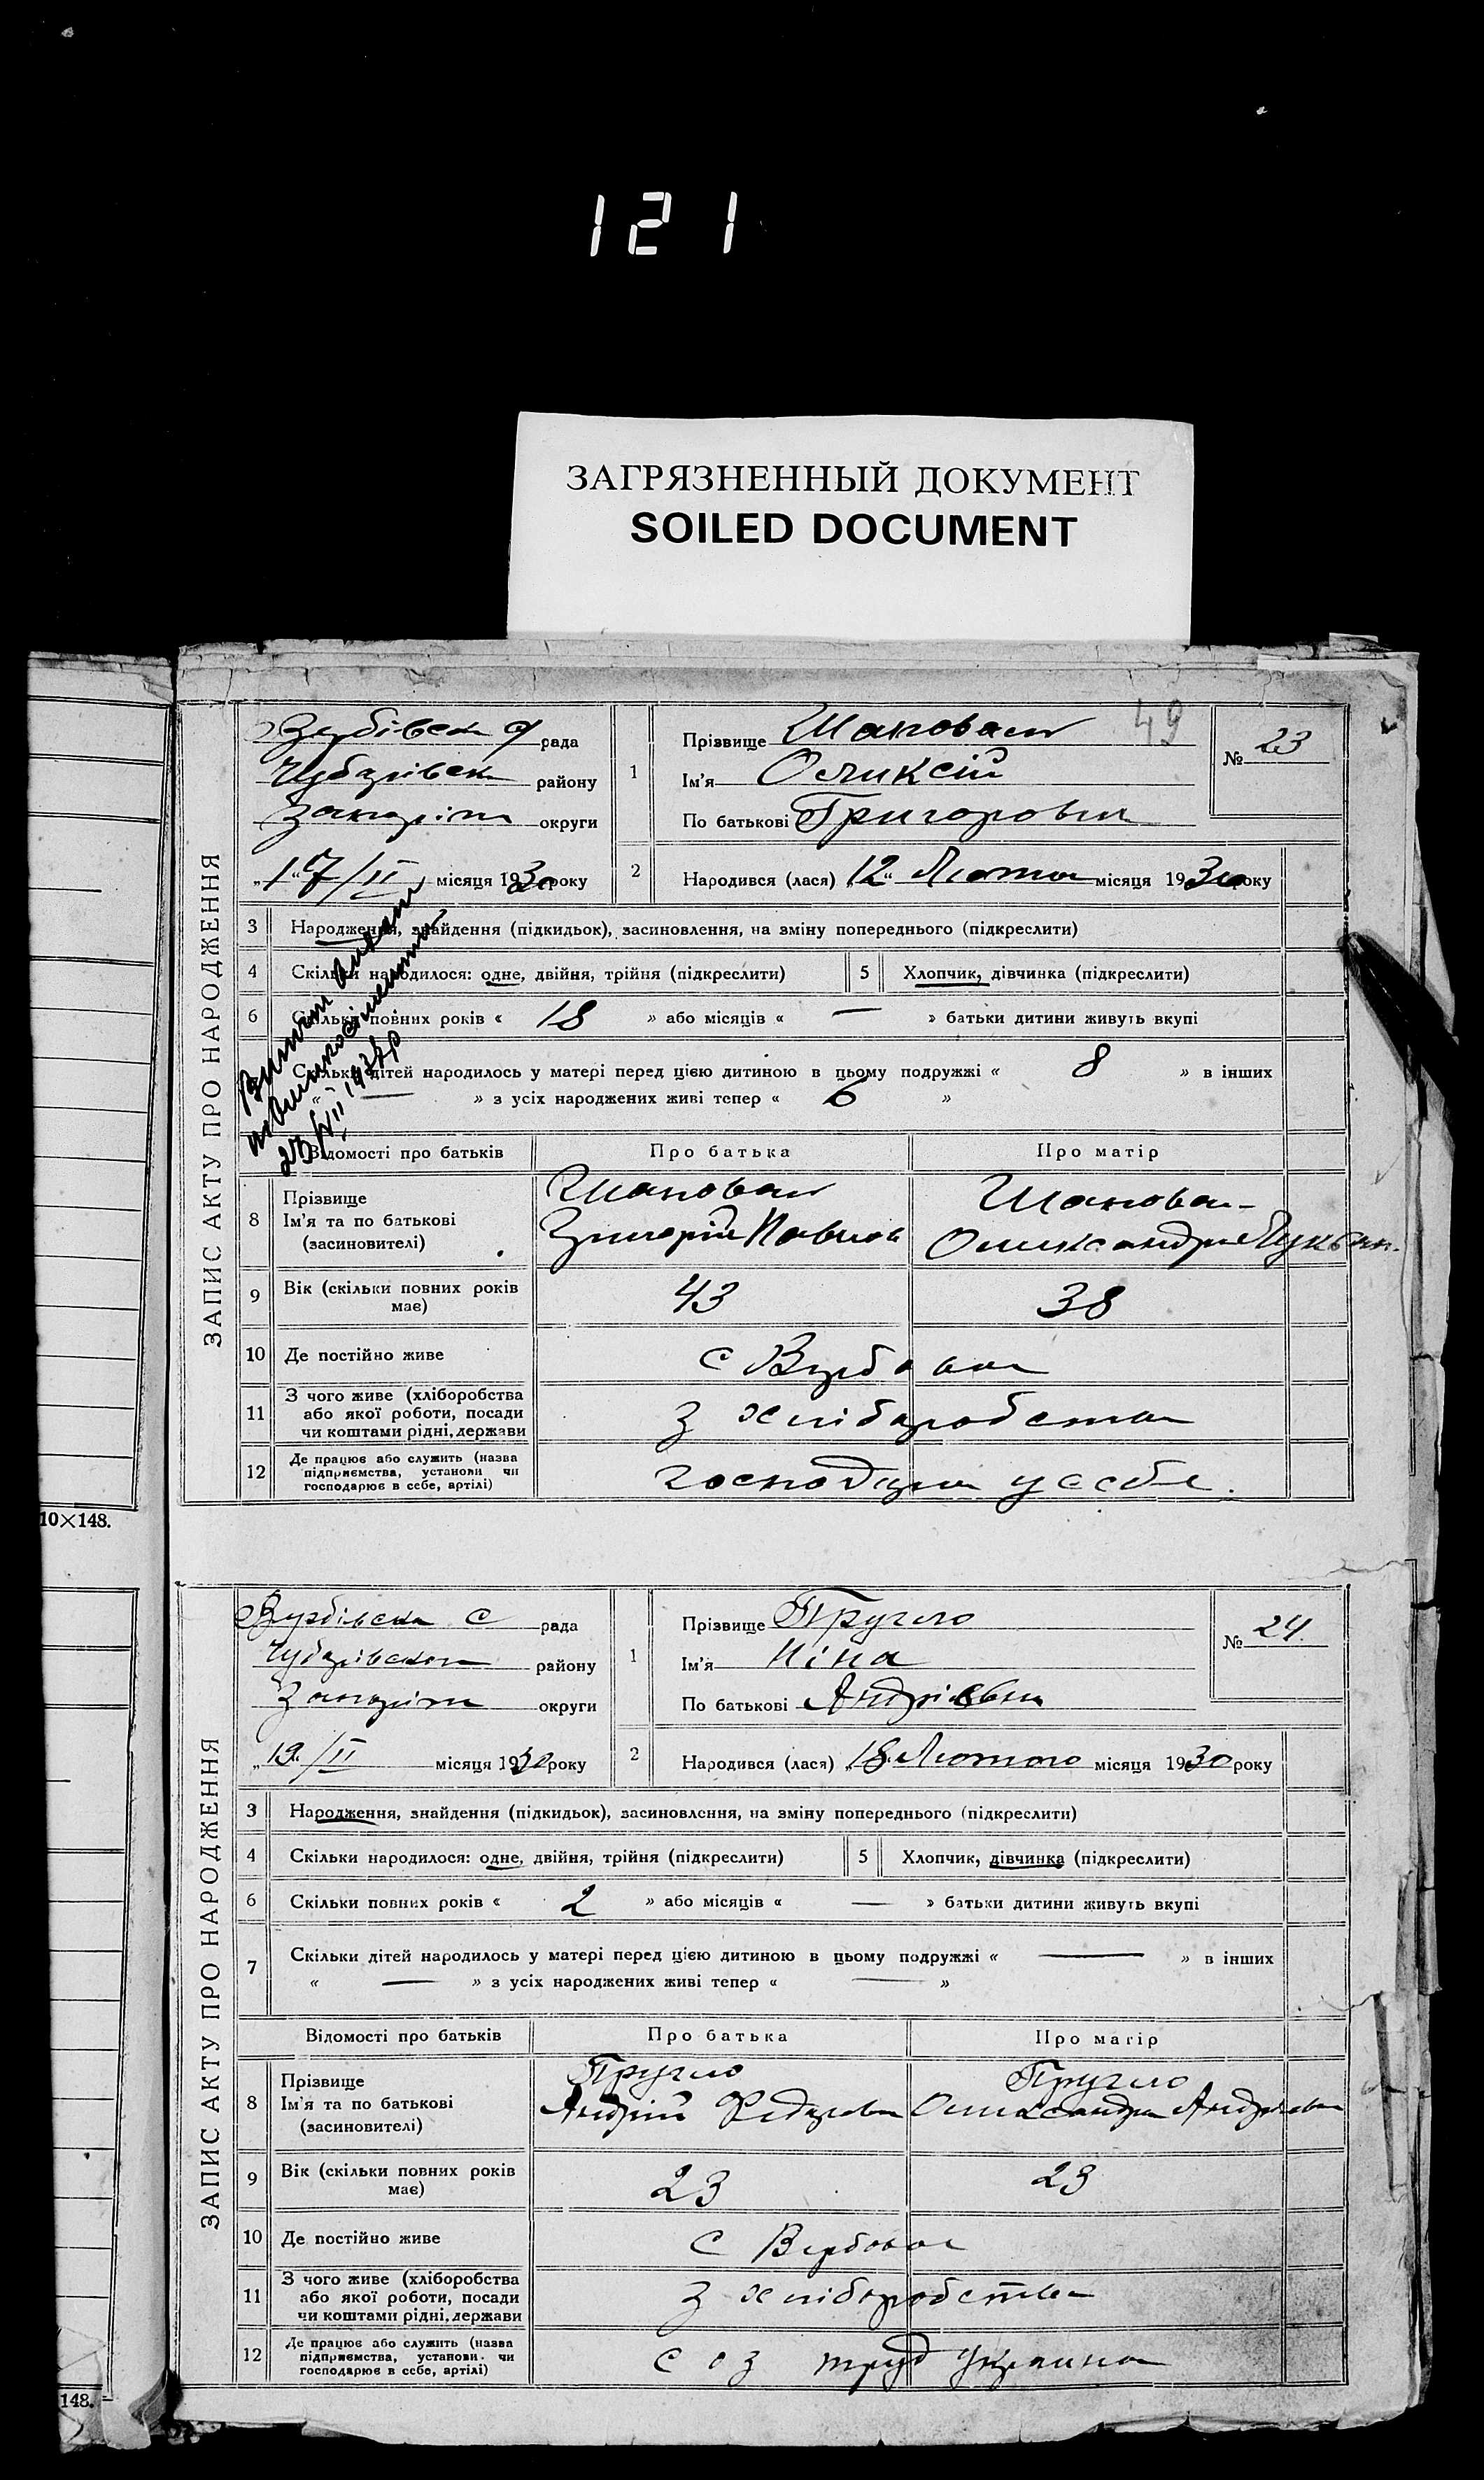 121
ЗАГРЯЗНЕННЫЙ ДОКУМЕНТ
SOILED DOCUMENT
49
ЗАПИС АКТУ ПРО НАРОДЖЕННЯ
рада
району
округи
„17/II місяця 1930 року
1 Прізвище Шаповал
Ім'я Оликсій
По батькові Григорович
№ 23
2 Народився (лася) „12“ Лютого місяця 1930 року
3 Народження, знайдення (підкидьок), засиновлення, на зміну попереднього (підкреслити)
4 Скільки народилося: одне, двійня, трійня (підкреслити) 5 Хлопчик, дівчинка (підкреслити)
6 Скільки повних років « 18 » або місяців « — » батьки дитини живуть вкупі
Скільки дітей народилось у матері перед цією дитиною в цьому подружжі « 8 » в інших
« — » з усіх народжених живі тепер « 6 »
Відомості про батьків Про батька Про матір
8 Прізвище
Ім'я та по батькові
(засиновителі)
Шаповал
Григорій Павлов
Шаповал
Олександра Лукьян.
9 Вік (скільки повних років
має) 43 38
10 Де постійно живе с Вербова
11 З чого живе (хліборобства
або якої роботи, посади
чи коштами рідні, держави
з хліборобства
12 Де працює або служить (назва
підприємства, установи чи
господарює в себе, артілі)
у себе.
10×148.
ЗАПИС АКТУ ПРО НАРОДЖЕННЯ
Вербівська С рада
району
округи
„19./II місяця 1930 року
1 Прізвище
Ім'я Ніна
По батькові Андріївна
№ 24.
2 Народився (лася) „18“ Лютого місяця 1930 року
3 Народження, знайдення (підкидьок), засиновлення, на зміну попереднього (підкреслити)
4 Скільки народилося: одне, двійня, трійня (підкреслити) 5 Хлопчик, дівчинка (підкреслити)
6 Скільки повних років « 2 » або місяців « — » батьки дитини живуть вкупі
7 Скільки дітей народилось у матері перед цією дитиною в цьому подружжі « — » в інших
« — » з усіх народжених живі тепер « — »
Відомості про батьків Про батька Про матір
8 Прізвище
Ім'я та по батькові
(засиновителі)
Андрій Федоров
Олександра Андріевна
9 Вік (скільки повних років
має) 23 23
10 Де постійно живе С Вербова
11 З чого живе (хліборобства
або якої роботи, посади
чи коштами рідні, держави
з хліборобства
12 Де працює або служить (назва
підприємства, установи чи
господарює в себе, артілі)
соз труд
148.